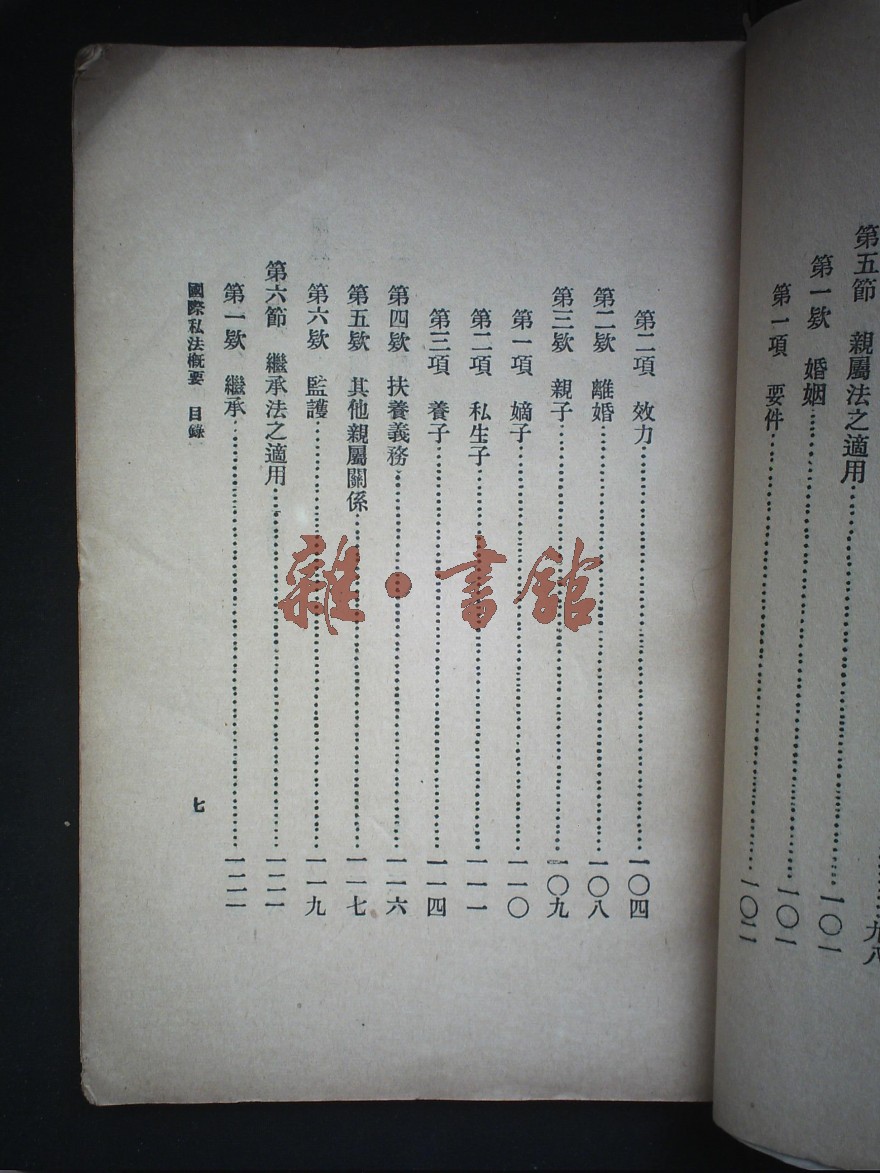 九八
第五節　親屬法之適用……一〇一
第一欵　婚姻……一〇一
第一項　要件……一〇二
第二項　效力……一〇四
第二欵　離婚……一〇八
第三欵　親子……一〇九
第一項　嫡子……一一〇
第二項　私生子……一一一
第三項　養子……一一四
第四欵　扶養義務……一一六
第五欵　其他親屬關係……一一七
第六欵　監護……一一九
第六節　繼承法之適用……一二一
第一欵　繼承……一二一
國際私法概要　目錄
七
雜·書館